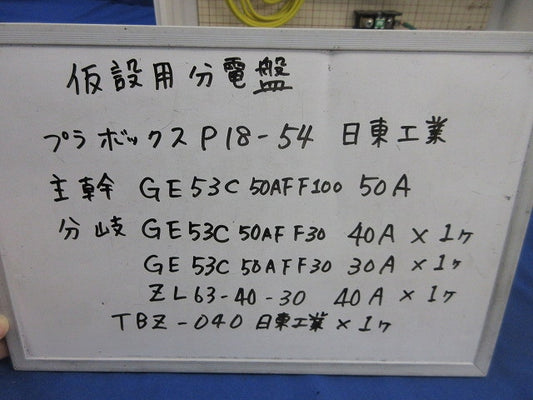 仮設用分電盤
プラボックス P18-54 日東工業
主幹 GE53C 50AF F100 50A
分岐 GE53C 50AF F30 40A × 1ヶ
GE53C 50AF F30 30A × 1ヶ
ZL63-40-30 40A × 1ヶ
TBZ-040 日東工業 × 1ヶ